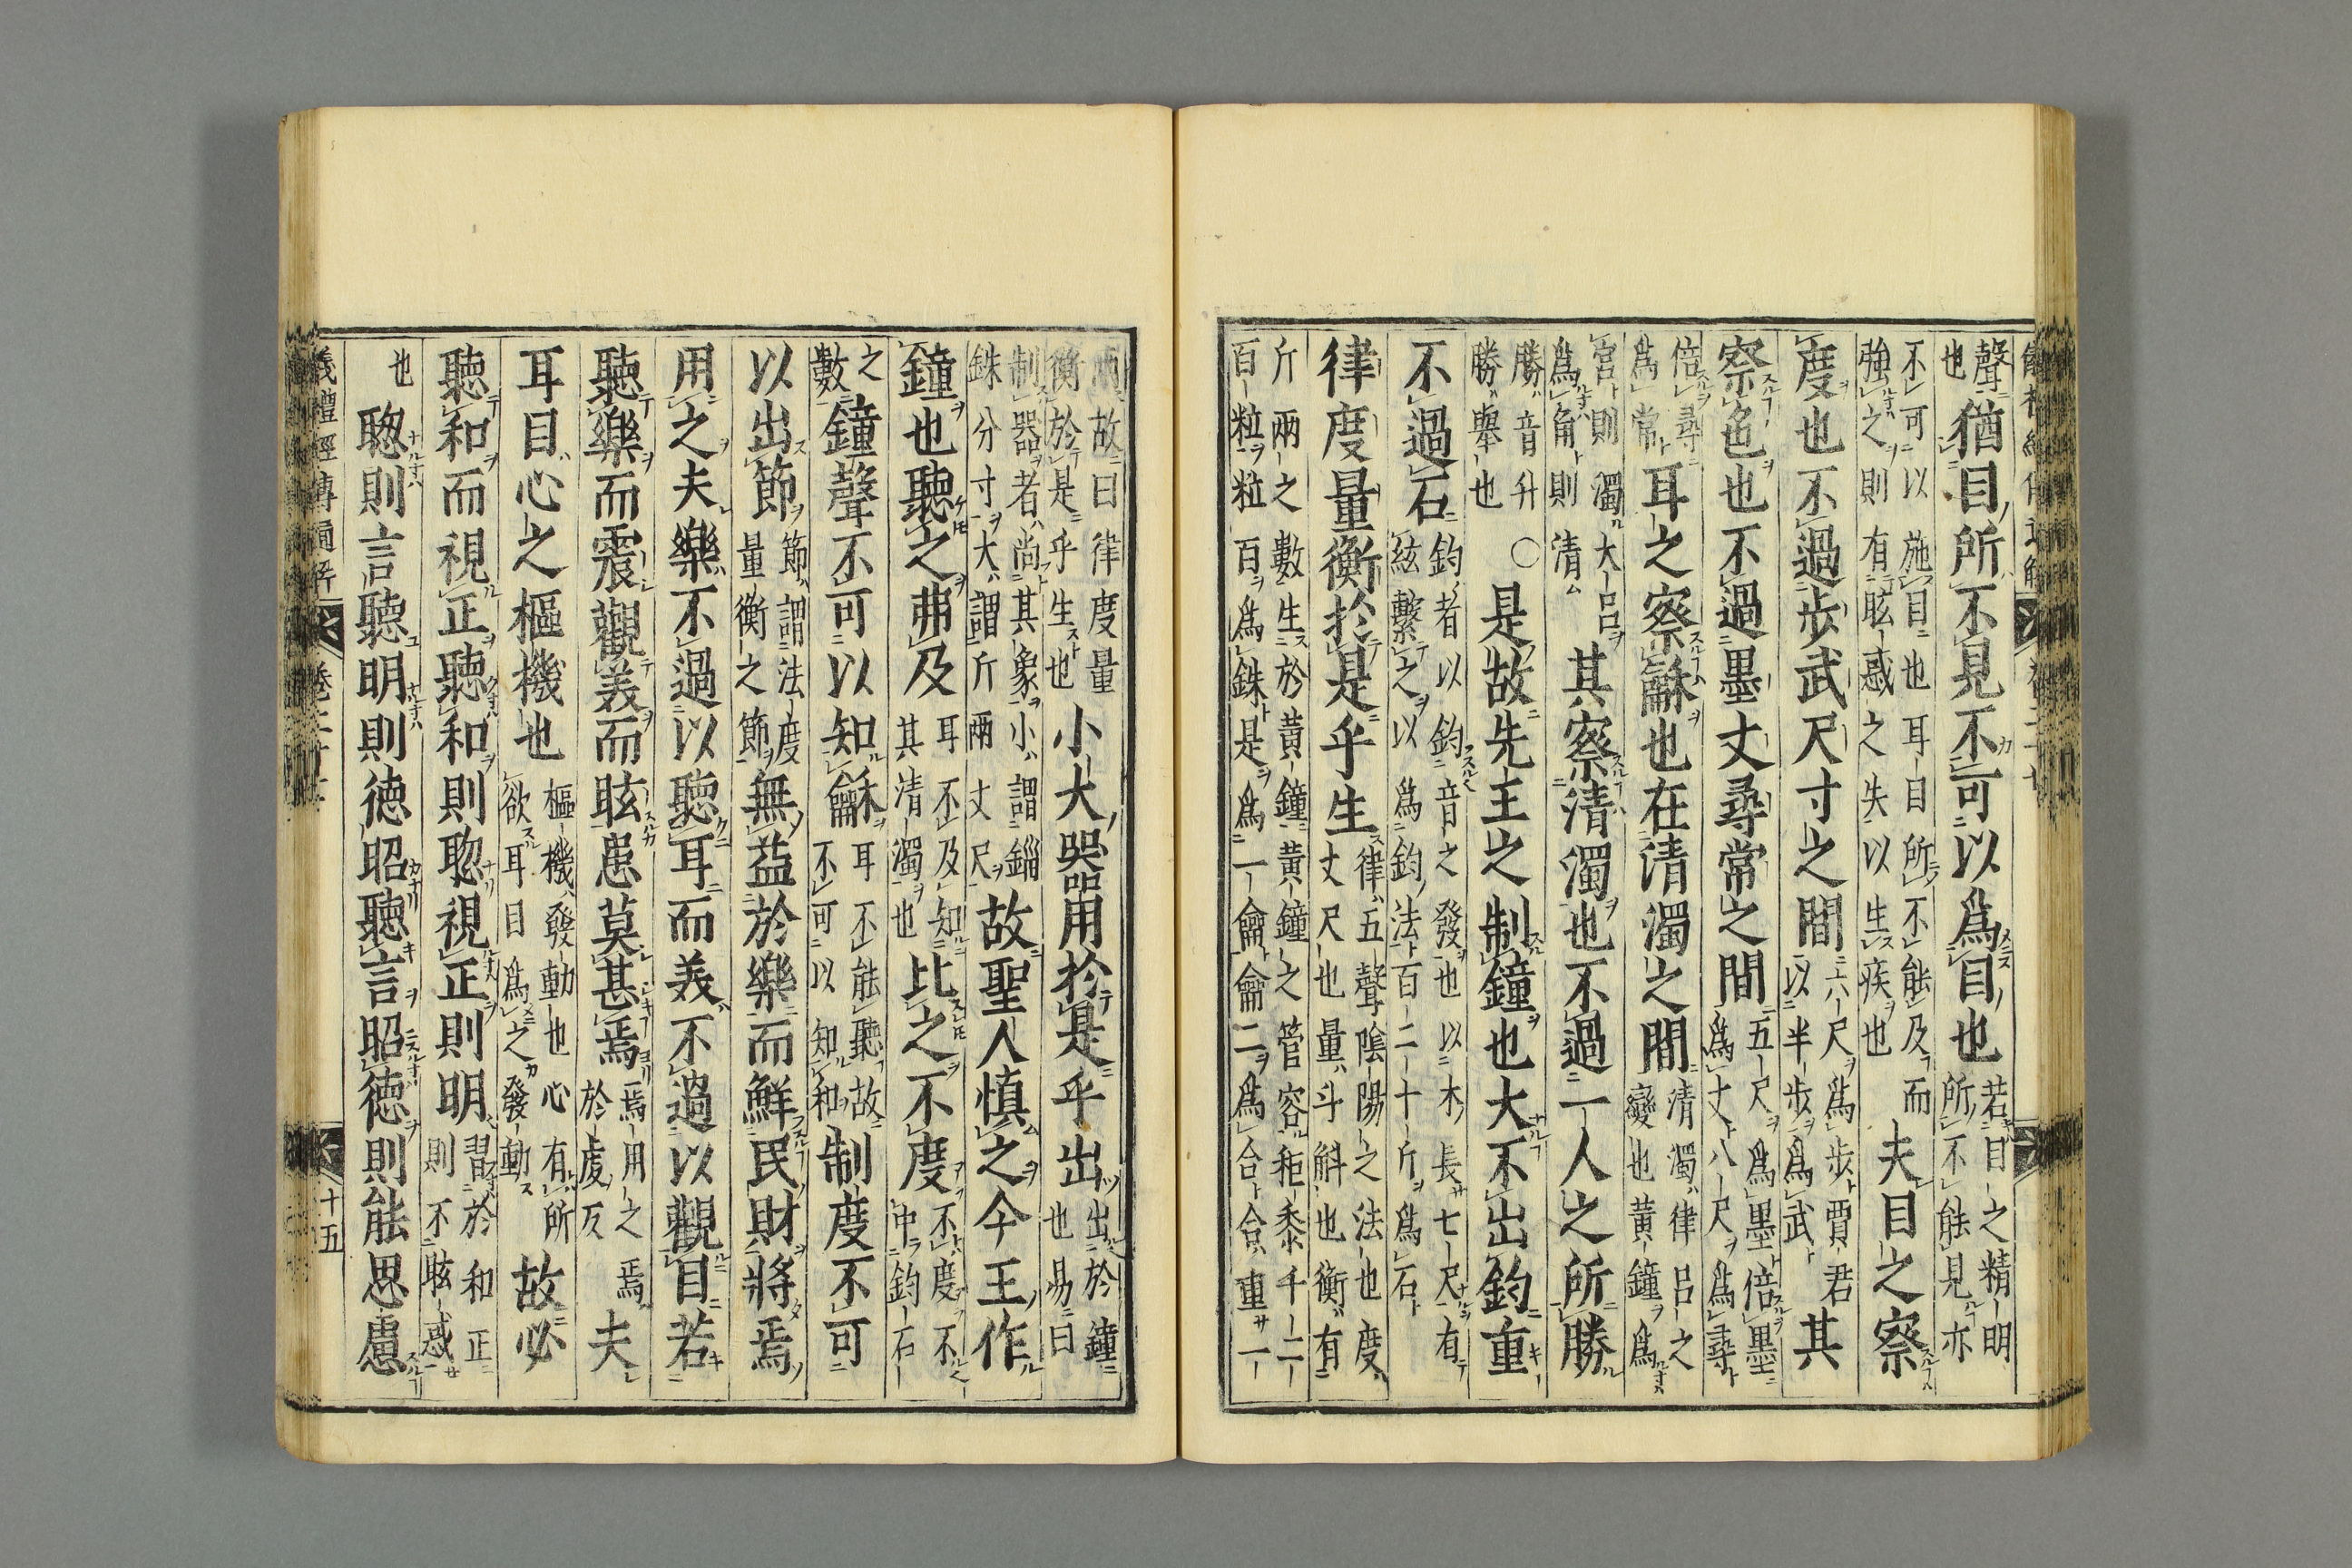 聲也猶目所不見不可以爲目也若目之精明所不能見亦
不可以施目也耳目所不能及而強之則有眩惑之失以生疾也夫目之察
度也不過歩武尺寸之間六尺爲歩賈君以半歩爲武其
察色也不過墨丈尋常之間五尺爲墨倍墨爲丈八尺爲尋
倍尋爲常耳之察龢也在清濁之間清濁律呂之變也黄鐘爲
宮則濁大呂爲角則清其察清濁也不過一人之所勝
勝音升勝舉也○是故先王之制鐘也大不出鈞重
不過石鈞者以鈞音之發也以木長七尺有絃繫之以爲鈞法百二十斤爲石
律度量衡於是乎生律五聲陰陽之法也度丈尺也量斗斛也衡有
斤兩之數生於黄鐘黄鐘之管容秬黍千二百粒粒百爲銖是爲一龠龠二爲合合重一
兩故曰律度量衡於是乎生也小大器用於是乎出出於鐘也易曰
制器者尚其象小謂錙銖分寸大謂斤兩丈尺故聖人慎之今王作
鐘也聽之弗及耳不及知其清濁也比之不度不度不中鈞石
之數鐘聲不可以知龢耳不能聽故不可以知和制度不可
以出節節謂法度量衡之節無益於樂而鮮民財將焉
用之夫樂不過以聽耳而義不過以觀目若
聽樂而震觀義而眩患莫甚焉焉用之焉於虔反夫
耳目心之樞機也樞機發動也心有所欲耳目爲之發動故必
聽和而視正聽和則聦視正則明習於和正則不眩惑
也聦則言聽明則徳昭聽言昭徳則能思慮
禮經傳通解 卷二十 十五